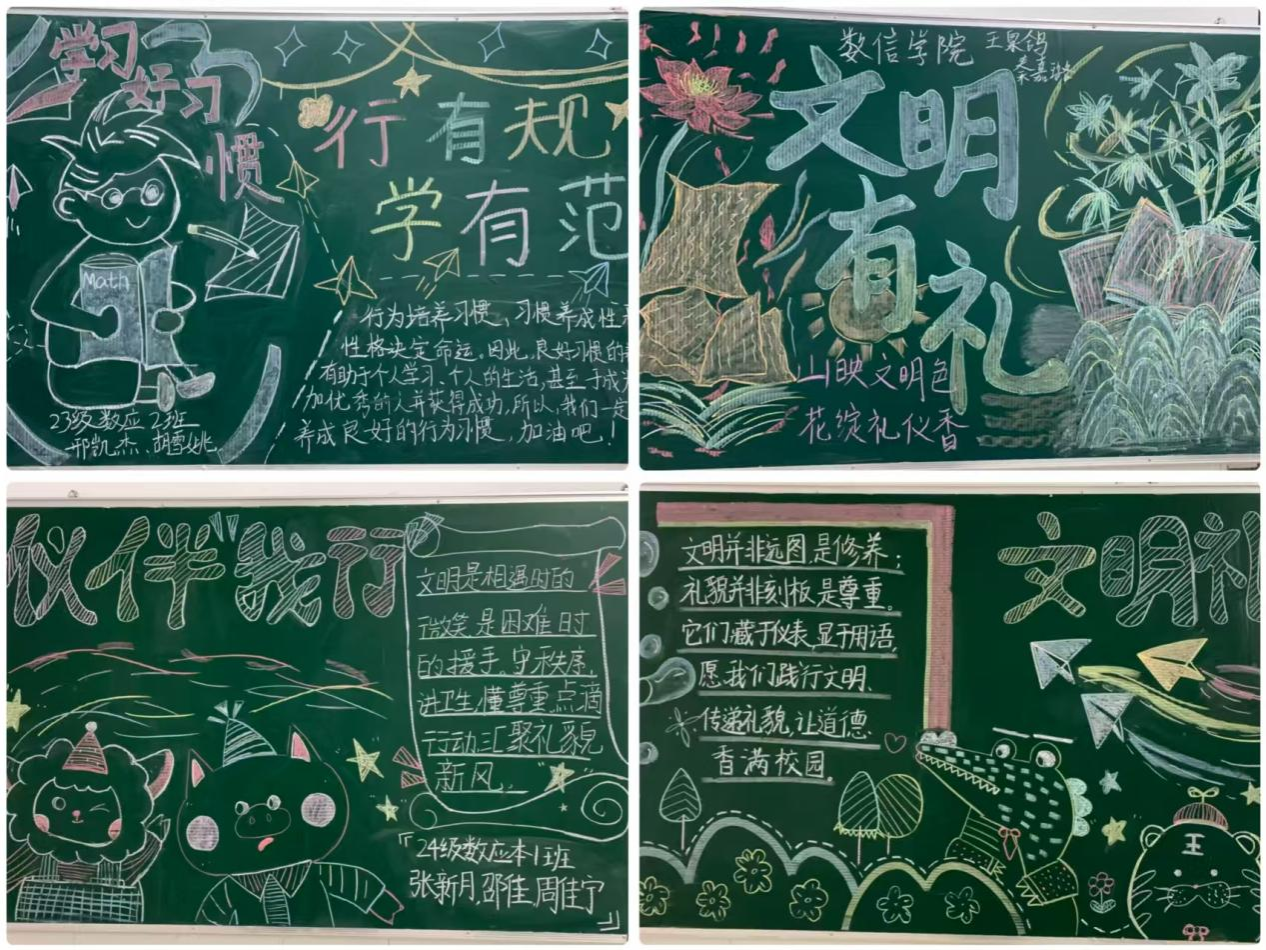 学习
好习
惯
Math
23级数应2班
邢凯杰、胡雪姚
行有规
学有范
行为培养习惯,习惯养成性
性格决定命运。因此,良好习惯的
有助于个人学习、个人的生活,甚至于成
加优秀的人并获得成功,所以,我们一定
养成良好的行为习惯,加油吧!
数信学院 王杲鸽
秦嘉璐
文明
有礼
山映文明色
花绽礼仪香
仪伴“我行
文明是相遇时的
微笑是困难时
的援手,守秩序,
讲卫生,懂尊重,点滴
行动汇聚礼貌
新风。
「24级数应本1班
张新月,邵佳,周佳宁」
文明并非远图,是修养;
礼貌并非刻板,是尊重。
它们藏于仪表,显于用语,
愿我们践行文明、
传递礼貌,让道德
香满校园。
文明礼
王